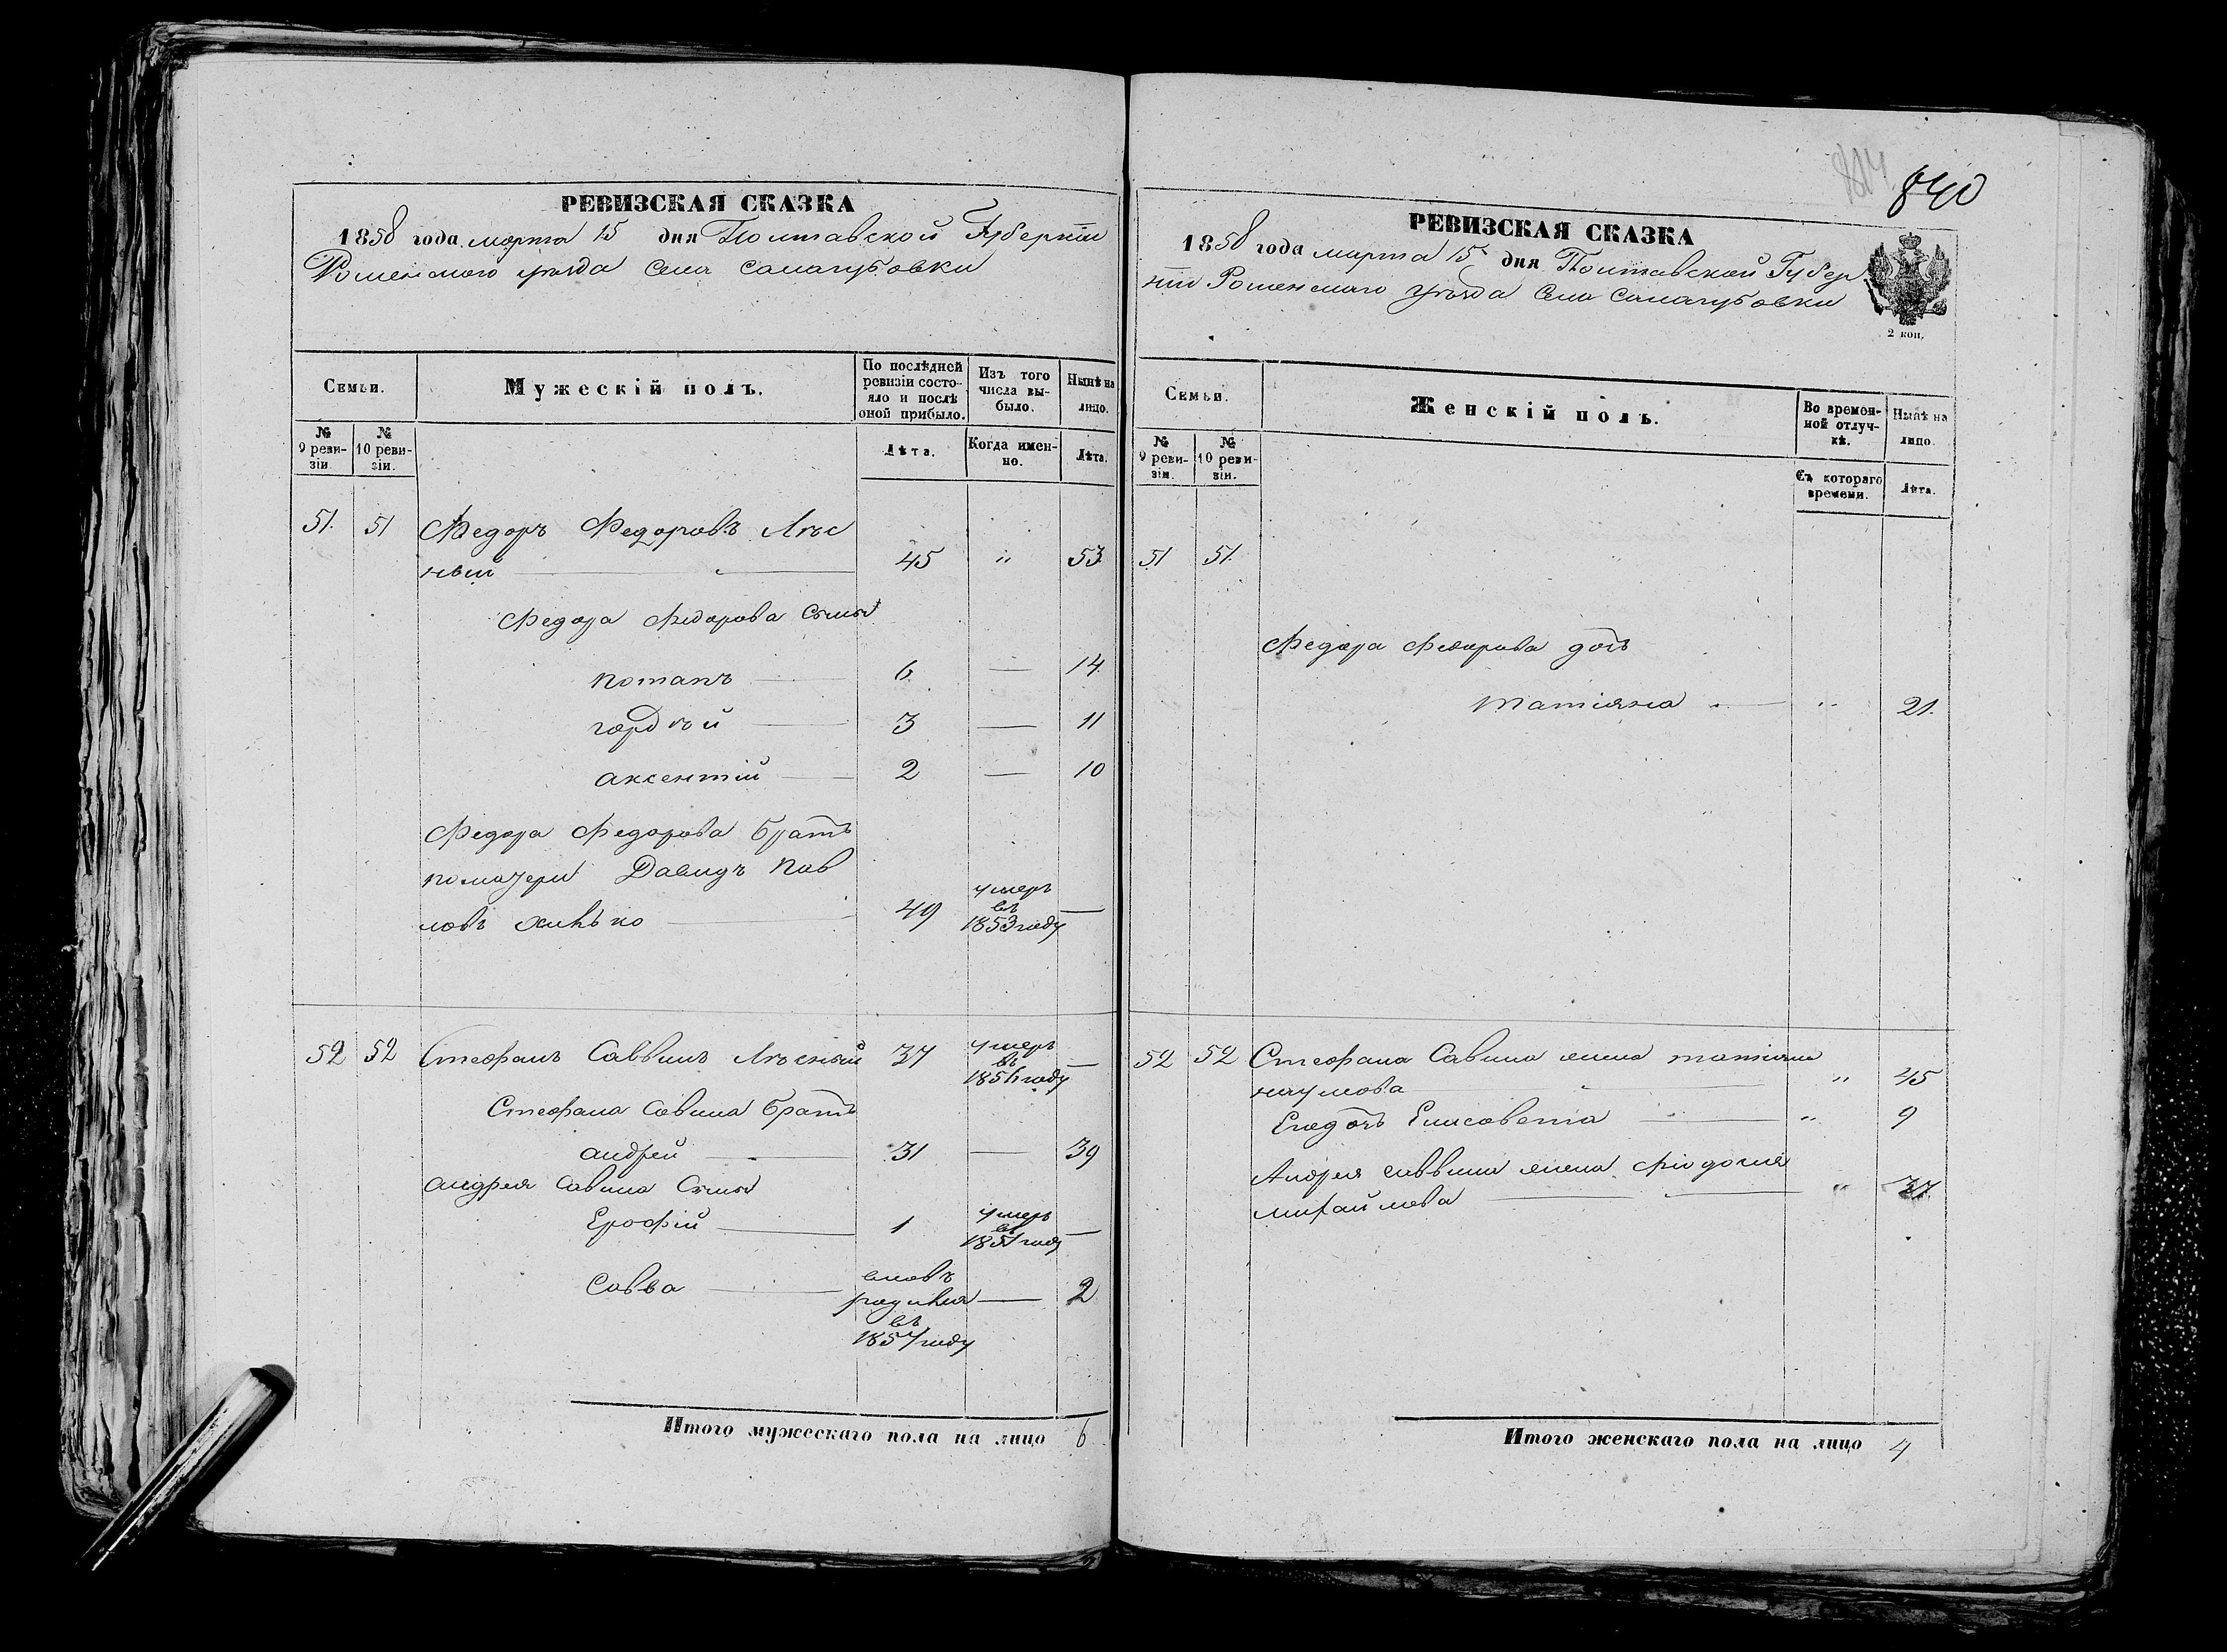 РЕВИЗСКАЯ СКАЗКА
1858 года марта 15 дня Полтавской Губерніи
Роменского уѣзда села салагубовки
Семьи.
Мужескій полъ.
По послѣдней ревизіи состояло и послѣ оной прибыло.
Изъ того числа выбыло.
Нынѣ на лицо.
№ 9 ревизіи.
№ 10 ревизіи.
Лѣта.
Когда именно.
Лѣта.
51. 51 Федоръ Федоровъ Лѣс
ный 45 " 53
Федора Федорова сыновья
потапъ 6 — 14
гордѣй 3 — 11
аксентій 2 — 10
Федора Федорова братъ
поматери Давидъ Пав
ловъ 49 умеръ въ 1853 году —
52 52 Стефанъ Саввинъ Лѣсный 37 умеръ въ 1856 году —
Стефана Савина братъ
андрей 31 — 39
андрея Савина сыновья
Ерофій 1 умеръ въ 1851 году —
Савва вновь родился въ 1857 году — 2
Итого мужескаго пола на лицо 6
814
840
РЕВИЗСКАЯ СКАЗКА
1858 года марта 15 дня Полтавской Губер
ніи Роменского уѣзда села салагубовки
2 коп.
Семьи.
Женскій полъ.
Во временной отлучкѣ.
Нынѣ на лицо.
№ 9 ревизіи.
№ 10 ревизіи.
Съ котораго времени.
Лѣта.
51 51.
Федора Федорова дочь
татіяна " 21.
52 52 Стефана Савина жена татіяна
наумова " 45
Егодочь Елисавета " 9
Андрея саввина жена Фіодосія
михайлова " 37
Итого женскаго пола на лицо 4